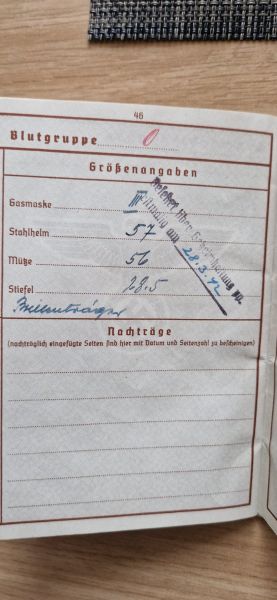 46
Blutgruppe O
Größenangaben
Gasmaske III
Stahlhelm 57
Mütze 56
Stiefel 28.5
Brillenträger
am 28.3.42
Nachträge
(nachträglich eingefügte Seiten sind hier mit Datum und Seitenzahl zu bescheinigen)